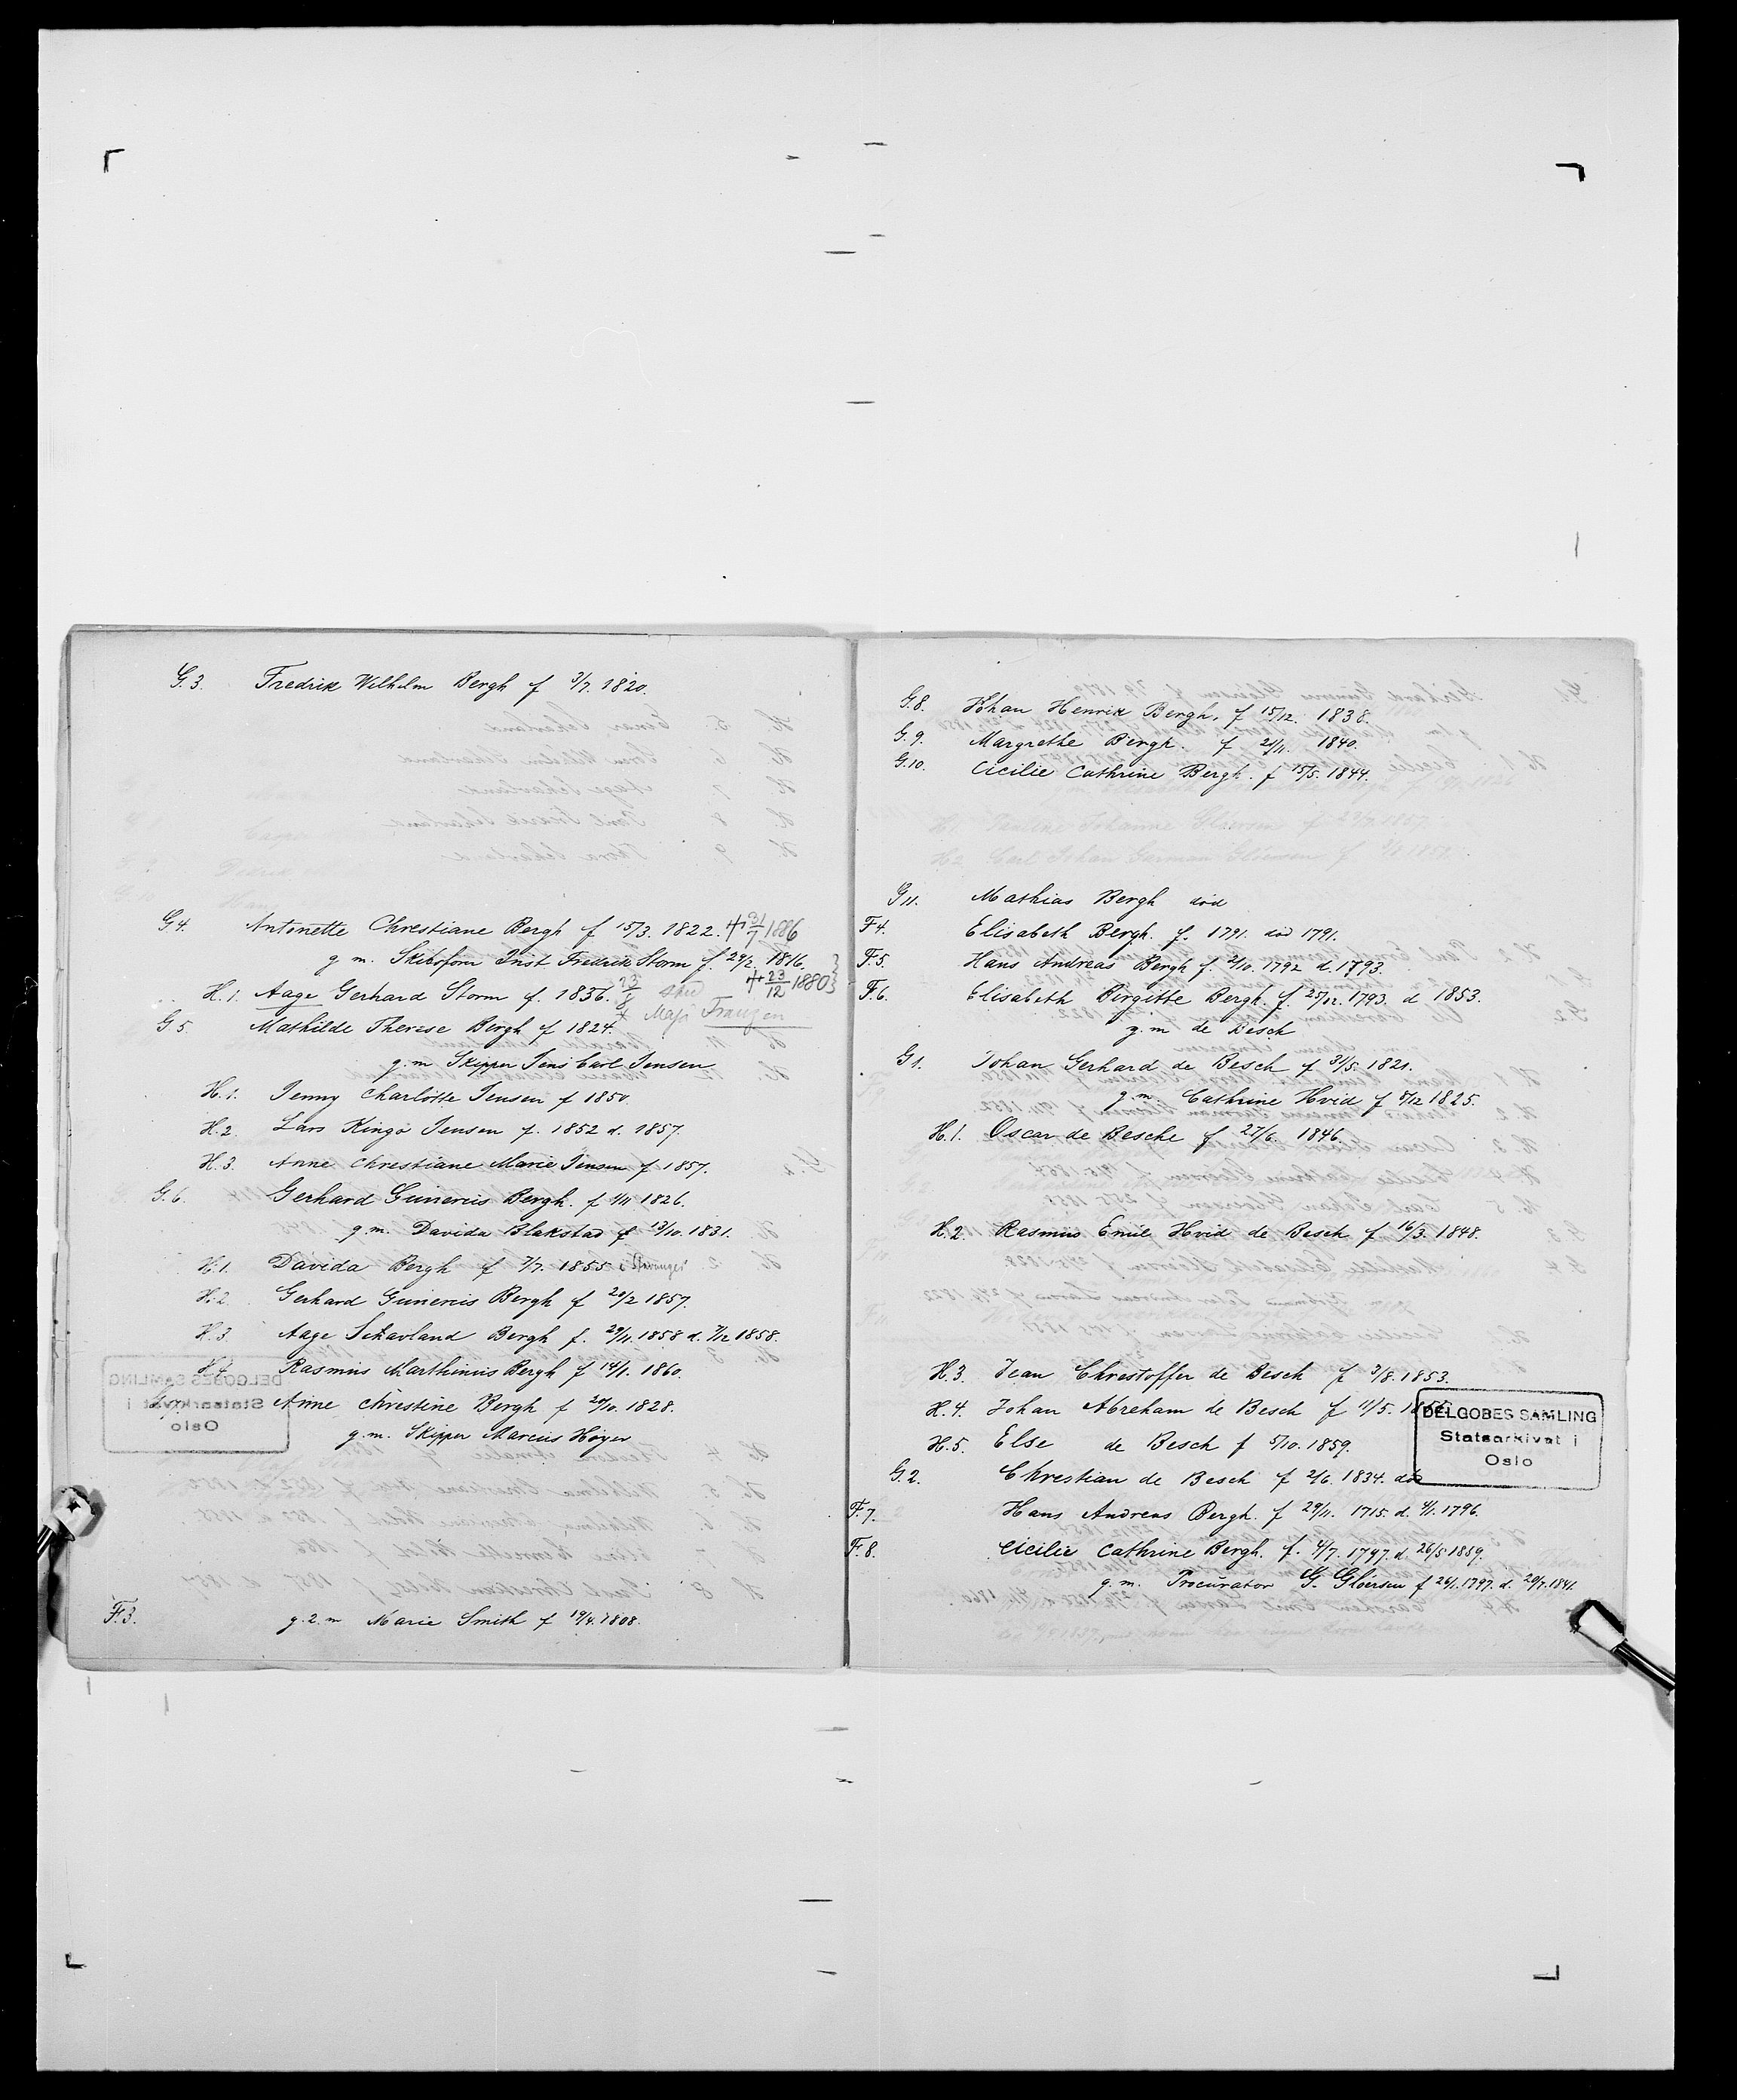 G. 3. Fredrik Wilhelm Bergh f 3/7. 1820.
G 4. Antonette Chrestiane Bergh f 15/3. 1822. + 31/7 1886
g m. Skibsform Inst Fredrik Storm f. 29/2. 1816. + 23/12 1880
H. 1. Aage Gerhard Storm f. 1856.
Maja Franzen
G 5. Mathilde Therese Bergh f 1824.
g. m Skipper Jens Carl Jensen
H. 1. Jenny Charlotte Jensen f 1850.
H. 2. Lars Kingo Jensen f. 1852 d. 1857.
H. 3. Anne Chrestiane Marie Jensen f 1857.
G. 6. Gerhard Gunerius Bergh. f 1/11 1826.
g. m. Davida Blakstad f 13/10. 1831.
H. 1. Davida Bergh f 7/7. 1855 i
H. 2. Gerhard Gunerius Bergh f 20/2 1857.
H. 3. Aage Schavland Bergh f. 29/11. 1858 d. 7/12 1858.
H 4. Rasmus Marthinius Bergh f 14/1. 1860.
Anne Christine Bergh f 29/10. 1828.
g. m. Skipper Marcus Høyer
F. 3. g. 2. m Marie Smith f 19/4. 1808.
G. 8. Johan Henrik Bergh. f 15/12. 1838.
G. 9. Margrethe Bergh. f 21/11. 1840.
G. 10. Cicilie Cathrine Bergh. f 15/5. 1844.
G 11. Mathias Bergh død
F 4. Elisabeth Bergh. f. 1791. død 1791.
F. 5. Hans Andreas Bergh f. 2/10. 1792 d. 1793.
F. 6. Elisabeth Birgitte Bergh. f. 25/12. 1793. d 1853.
g. m de Besch
G 1. Johan Gerhard de Besch f 31/5. 1821.
g. m. Cathrine Hvid f 5/12 1825.
H. 1. Oscar de Besche f 27/6. 1846.
H. 2. Rasmus Emil Hvid de Besch f 16/3. 1848.
H. 3. Jean Chrestoffer de Besch f 3/8. 1853.
H. 4. Johan Abreham de Besch f 11/5.
H. 5. Else de Besch f 5/10. 1859.
G. 2. Chrestian de Besch f 2/6. 1834. død
F. 7. Hans Andreas Bergh. f 29/11. 1715. d. 4/1. 1796.
F. 8. Cicilie Cathrine Bergh. f. 4/7. 1797. d. 26/5 1889.
g. m. Procurator G. Gløersen f 26/1. 1797. d. 20/7. 1841.
DELGOBES SAMLING
Statsarkivat i
Oslo